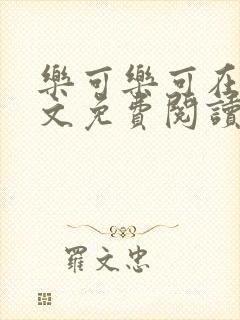 樂可樂可在
文免費閱讀
羅文忠